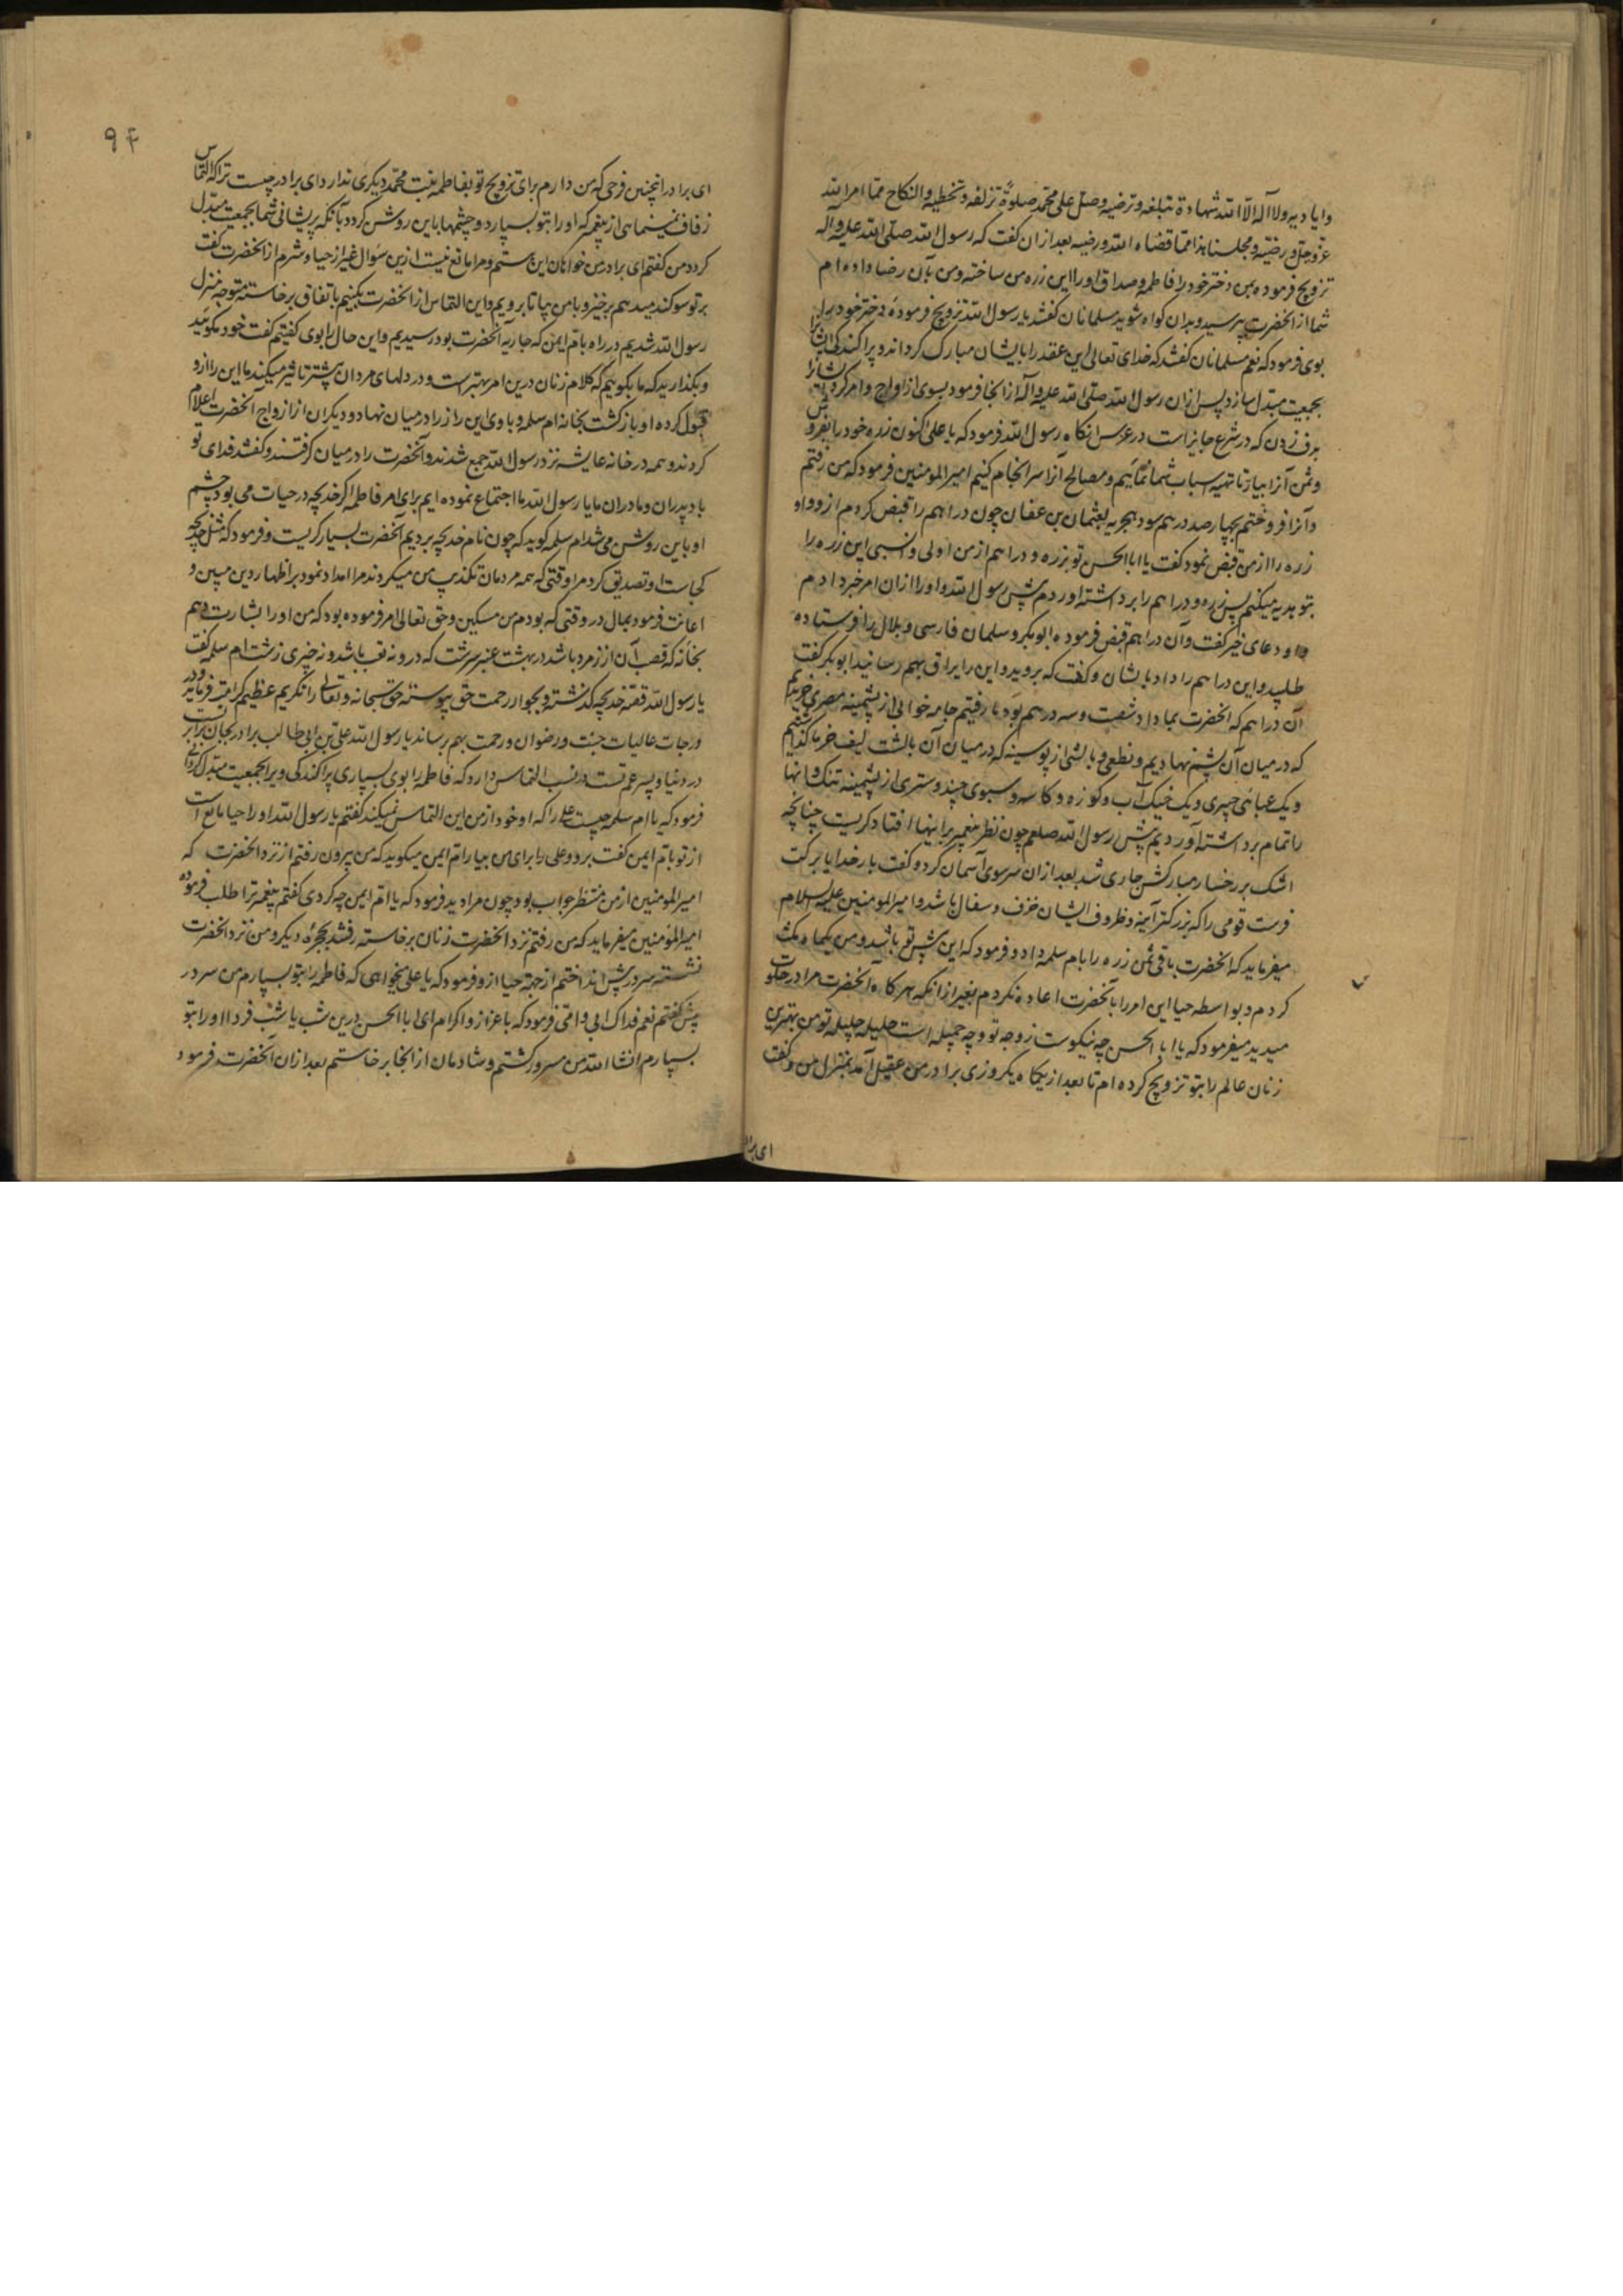 وایادیه ولا آله الا الله شهادة تبلغه وترضیه وصل علی محمد صلوةً تزلفه وتخطیه والنکاح مما امر الله
عزوجل ورضیّه ومجلسنا هذا مما قضاه الله ورضیه بعد ازان کفت که رسول الله صلی الله علیه وآله
تزویج فرموده بمن دختر خود را فاطمه وصداق او را این زره من ساخته ومن بآن رضا داده ام
شما از انحضرت بپرسید وبدان کواه شوید مسلمانان کفتند یا رسول الله تزویج فرمودۀ دختر خود را
بوی فرمود که نعم مسلمانان کفتند که خدای تعالی این عقد را بایشان مبارک کرداند وپراکندکی ایشانرا
بجمعیت مبدل سازد پس ازان رسول الله صلی الله علیه وآله از انجا فرمود بسوی ازواج وامر کرد ایشانرا
بدف زدن که در شرع جایز است در عرس انکاه رسول الله فرمود که یا علی اکنون زره خود را بفروش
وثمن آنرا بیار تا تهیه اسباب شما نمائیم ومصالح آنرا سرانجام کنیم امیرالمومنین فرمود که من رفتم
وآنرا فروختم بچهارصد درهم سود هجریه بعثمان بن عفان چون دراهم را قبض کردم ازو واو
زره را از من قبض نمود کفت یا ابا الحسن تو بزره ودراهم از من اولی وانسبی این زره را
بتو هدیه میکنم پس زره ودراهم را برداشته اوردم پیش رسول الله واورا ازان امر خبر دادم
واو دعای خیر کفت وآن دراهم قبض فرموده ابوبکر وسلمان فارسی وبلال را فرستاده
طلبید واین دراهم را داد بایشان وکفت که بروید واین را یراق بهم رسانید ابوبکر کفت
آن دراهم که انحضرت بما داد شصت وسه درهم بود ما رفتیم جامه خوابی از پشمینه مصری خریدیم
که در میان آن پشم نهادیم ونطعی وبالشی از پوستینه که در میان آن بالشت لیف خرما کنده بودیم
ویک عبائی خیبری ویک خیک آب وکوزه وکاسه وسبوی چند وستری از پشمینه تنک وانها
را تمام برداشته آوردیم پیش رسول الله صلعم چون نظر پیغمبر براینها افتاد کریست چنانچه
اشک بر رخسار مبارکش جاری شد بعد ازان سر سوی آسمان کرد وکفت بار خدایا برکت
فرست قومی را که بزرکتر آنیه وظروف ایشان خزف وسفال باشد وامیرالمومنین علیه السلام
میفرماید که انحضرت باقی ثمن زره را بام سلمه داد وفرمود که این پیش تو باشد ومن یکماه مکث
کردم وبواسطه حیا این امر را بآنحضرت اعاده نکردم بغیر از انکه هر کاه آنحضرت مرا در خلوت
میدید میفرمود که یا ابا الحسن چه نیکوست زوجه تو وچه جمیله است حلیله جلیله تو من بهترین
زنان عالم را بتو تزویج کرده ام تا بعد از یکماه یکروزی برادر من عقیل آمد بمنزل من وکفت
ای برادر
ای برادر انچنین فرحی که من دارم برای تزویج تو بفاطمه بنت محمد دیکری ندارد ای برادر چیست ترا که التماس
زفاف نمینمائی از پیغمبر که او را بتو بسپارد وچشمها باین روشن کردد بآنکه پریشانی شما بجمعیت مبدل
کردد من کفتم ای برادر من خواهان این هستم ومرا مانع نیست ازین سوال غیر از حیا وشرم از انحضرت کفت
بر تو سوکند میدهم برخیز وبا من بیا تا برویم واین التماس از انحضرت بکنیم باتفاق برخاسته متوجه منزل
رسول الله شدیم در راه بام ایمن که جاریه آنحضرت بود رسیدیم واین حال را بوی کفتیم کفت خود مکوئید
وبکذارید که ما بکوئیم که کلام زنان درین امر بهتر است ودر دلهای مردان بیشتر تاثیر میکند ما این را ازو
قبول کرده او بازکشت بخانه ام سلمه وبا وی این راز را در میان نهاد ودیکران از ازواج آنحضرت اعلام
کردند وهمه در خانه عایشه نزد رسول الله جمع شدند وآنحضرت را در میان کرفتند وکفتند فدای تو
باد پدران ومادران ما یا رسول الله ما اجتماع نموده ایم برای امر فاطمه اکر خدیجه در حیات می بود چشم
او باین روشن می شد ام سلمه کوید که چون نام خدیجه بردیم آنحضرت بسیار کریست وفرمود که مثل خدیجه
کجاست او تصدیق کرد مرا وقتی که همه مردمان تکذیب من میکردند مرا امداد نمود بر اظهار دین مبین و
اعانت فرمود بمال در وقتی که بودم من مسکین وحق تعالی امر فرموده بود که من او را بشارت دهم
بخانه که قصب آن از زمرد باشد در بهشت عنبر سرشت که درو نه تعب باشد ونه خبری زشت ام سلمه کفت
یا رسول الله قصه خدیجه کذشت وبجوار رحمت حق پیوسته حق سبحانه وتعالی را تکریم عظیم کرامت فرماید ودر
درجات عالیات جنت ورضوان ورحمت بهم برساند یا رسول الله علی بن ابی طالب برادر بجان برابر تست
در دنیا وپسر عم تست در نسب التماس دارد که فاطمه را بوی بسپاری پراکندکی ویرا بجمعیت مبدل کردانی
فرمود که یا ام سلمه چیست علی را که او خود از من این التماس نمیکند کفتم یا رسول الله او را حیا مانع است
از تو بام ایمن کفت برو وعلی را برای من بیار ام ایمن میکوید که من بیرون رفتم از نزد انحضرت که
امیرالمومنین از من منتظر جواب بود چون مرا دید فرمود که یا ام ایمن چه کردی کفتم پیغمبر ترا طلب فرموده
امیرالمومنین میفرماید که من رفتم نزد انحضرت زنان برخاسته رفتند بحجرۀ دیکر ومن نزد انحضرت
نشسته سر در پیش انداختم از جهة حیا ازو فرمود که یا علی میخواهی که فاطمه را بتو بسپارم من سر در
پیش کفتم نعم فداک ابی وامی فرمود که باعزاز واکرام ای ابا الحسن درین شب یا شب فردا او را بتو
بسپارم انشا الله من مسرور کشتم وشادمان از انجا برخاستم بعد ازان آنحضرت فرمود
۹۴